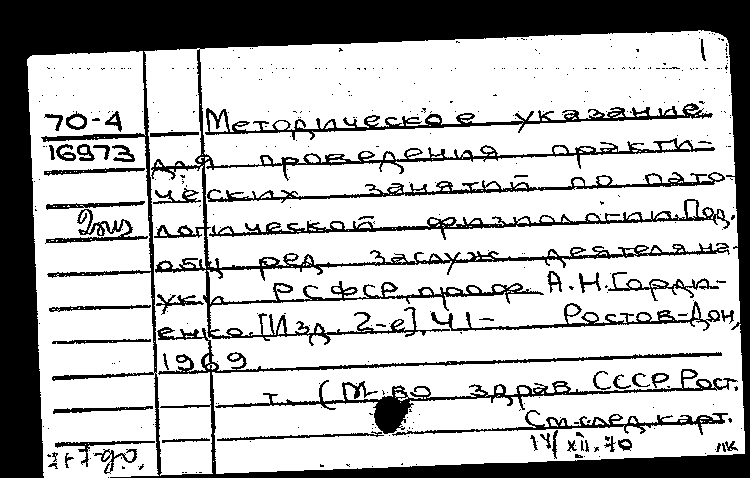 1
70-4 Методическое указание
16973 для проведения практи-
ческих занятий по пато-
2экз логической физиологии. Под
общ. ред. заслуж. деятеля на-
уки РСФСР, проф. А.Н. Горди-
енко. [Изд. 2-е]. Ч.1- Ростов-Дон,
1969.
т. (М-во здрав. СССР. Рост.
См. след. карт.
14/XII.70